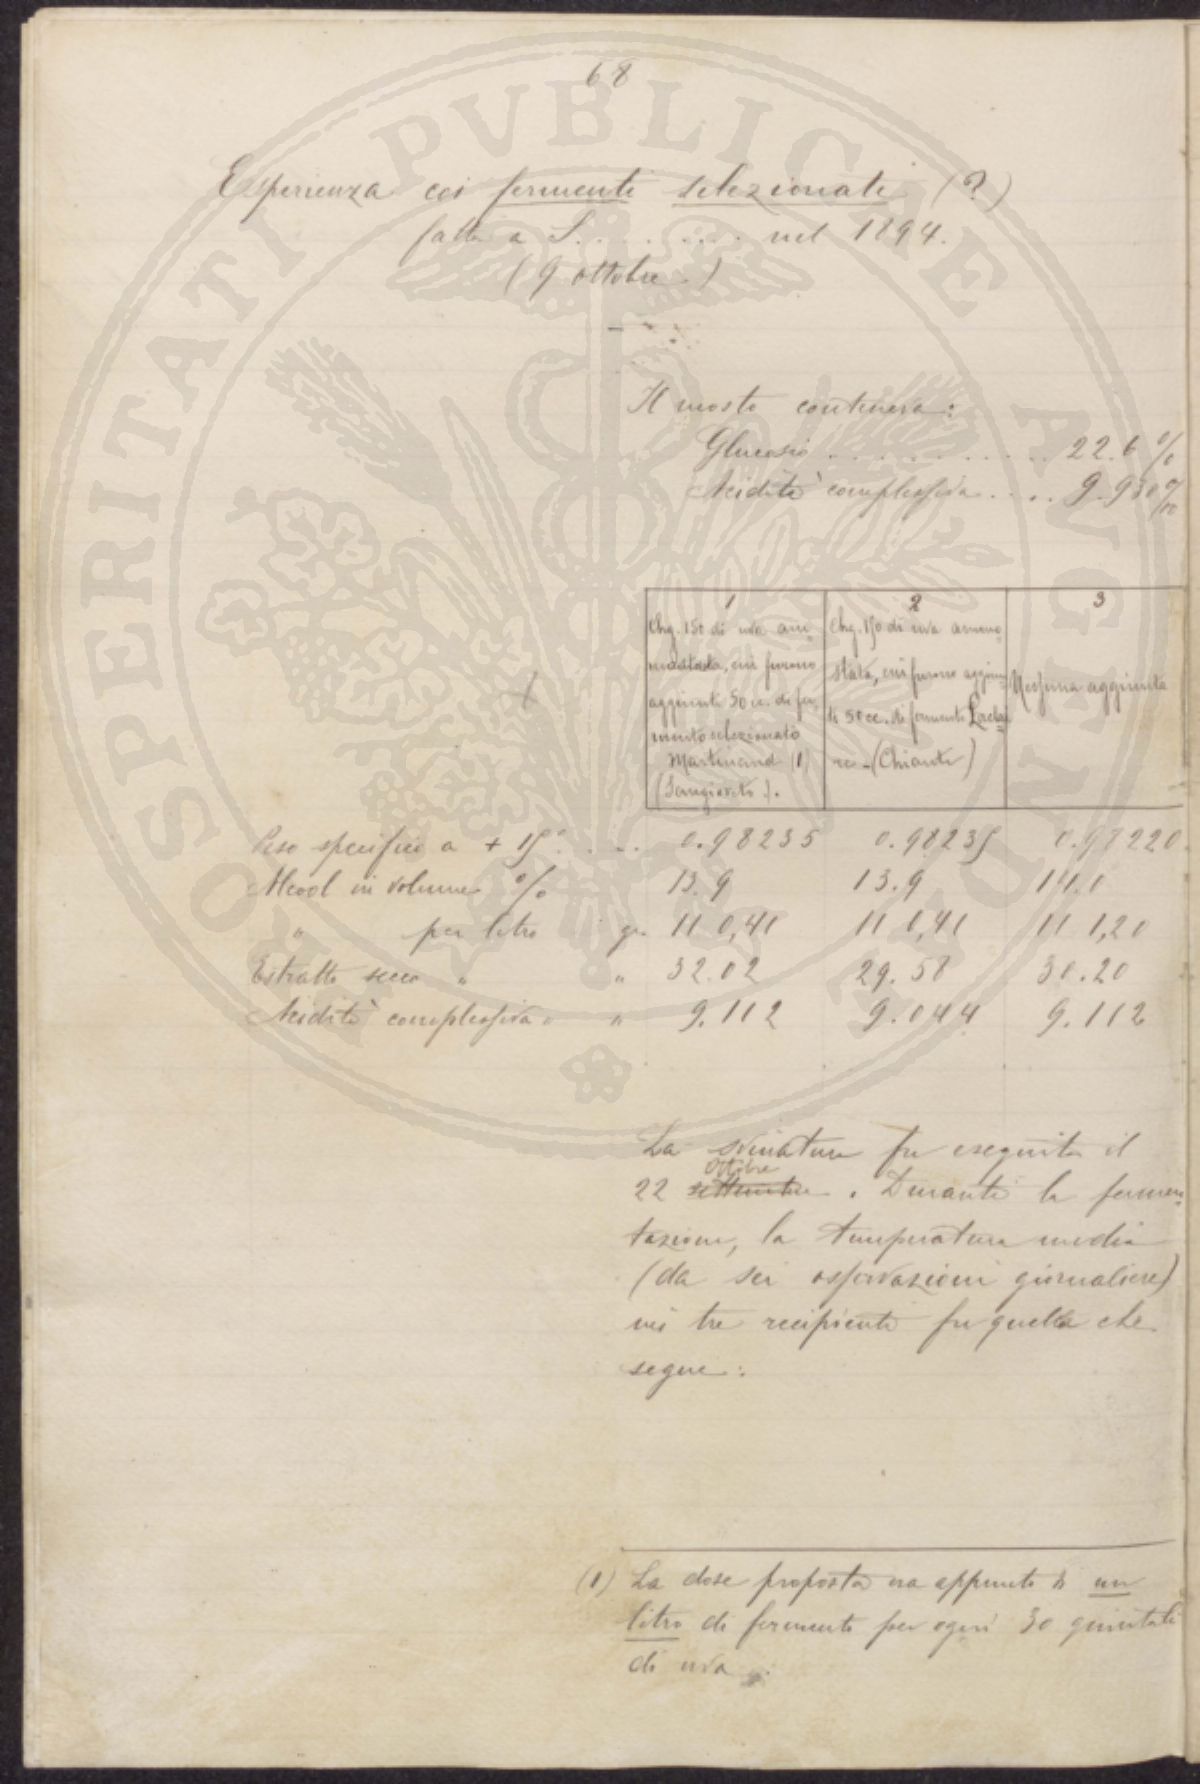 68
Esperienza coi fermenti selezionati (?)
fatta a S. . . . . . . . nel 1894.
(9 ottobre)
Il mosto conteneva:
Glucosio . . . . . . . . . . . 22.6 %
Acidità complessiva . . . . 9.930 ‰
1
Chg. 150 di uva am=
mostata, cui furono
aggiunti 50 cc. di fer=
mento selezionato
Martinand (1)
(Sangioveto).
2
Chg. 150 di uva ammo=
stata, cui furono aggiun=
ti 50 cc. di fermento
re - (Chianti)
3
Nessuna aggiunta
Peso specifico a + 15° . . . . 0.98235 0.98235 0.98220
Alcool in volume % 13.9 13.9 14.0
" per litro gr. 110,41 110,41 111,20
Estratto secco " " 32.02 29.58 30.20
Acidità complessiva " " 9.112 9.044 9.112
La svinatura fu eseguita il
22 settembre ottobre. Durante la fermen=
tazione, la temperatura media
(da sei osservazioni giornaliere)
nei tre recipienti fu quella che
segue:
(1) La dose proposta era appunto di un
litro di fermento per ogni 30 quintali
di uva.
SPERITATI PVBLICAE AVGENDAE